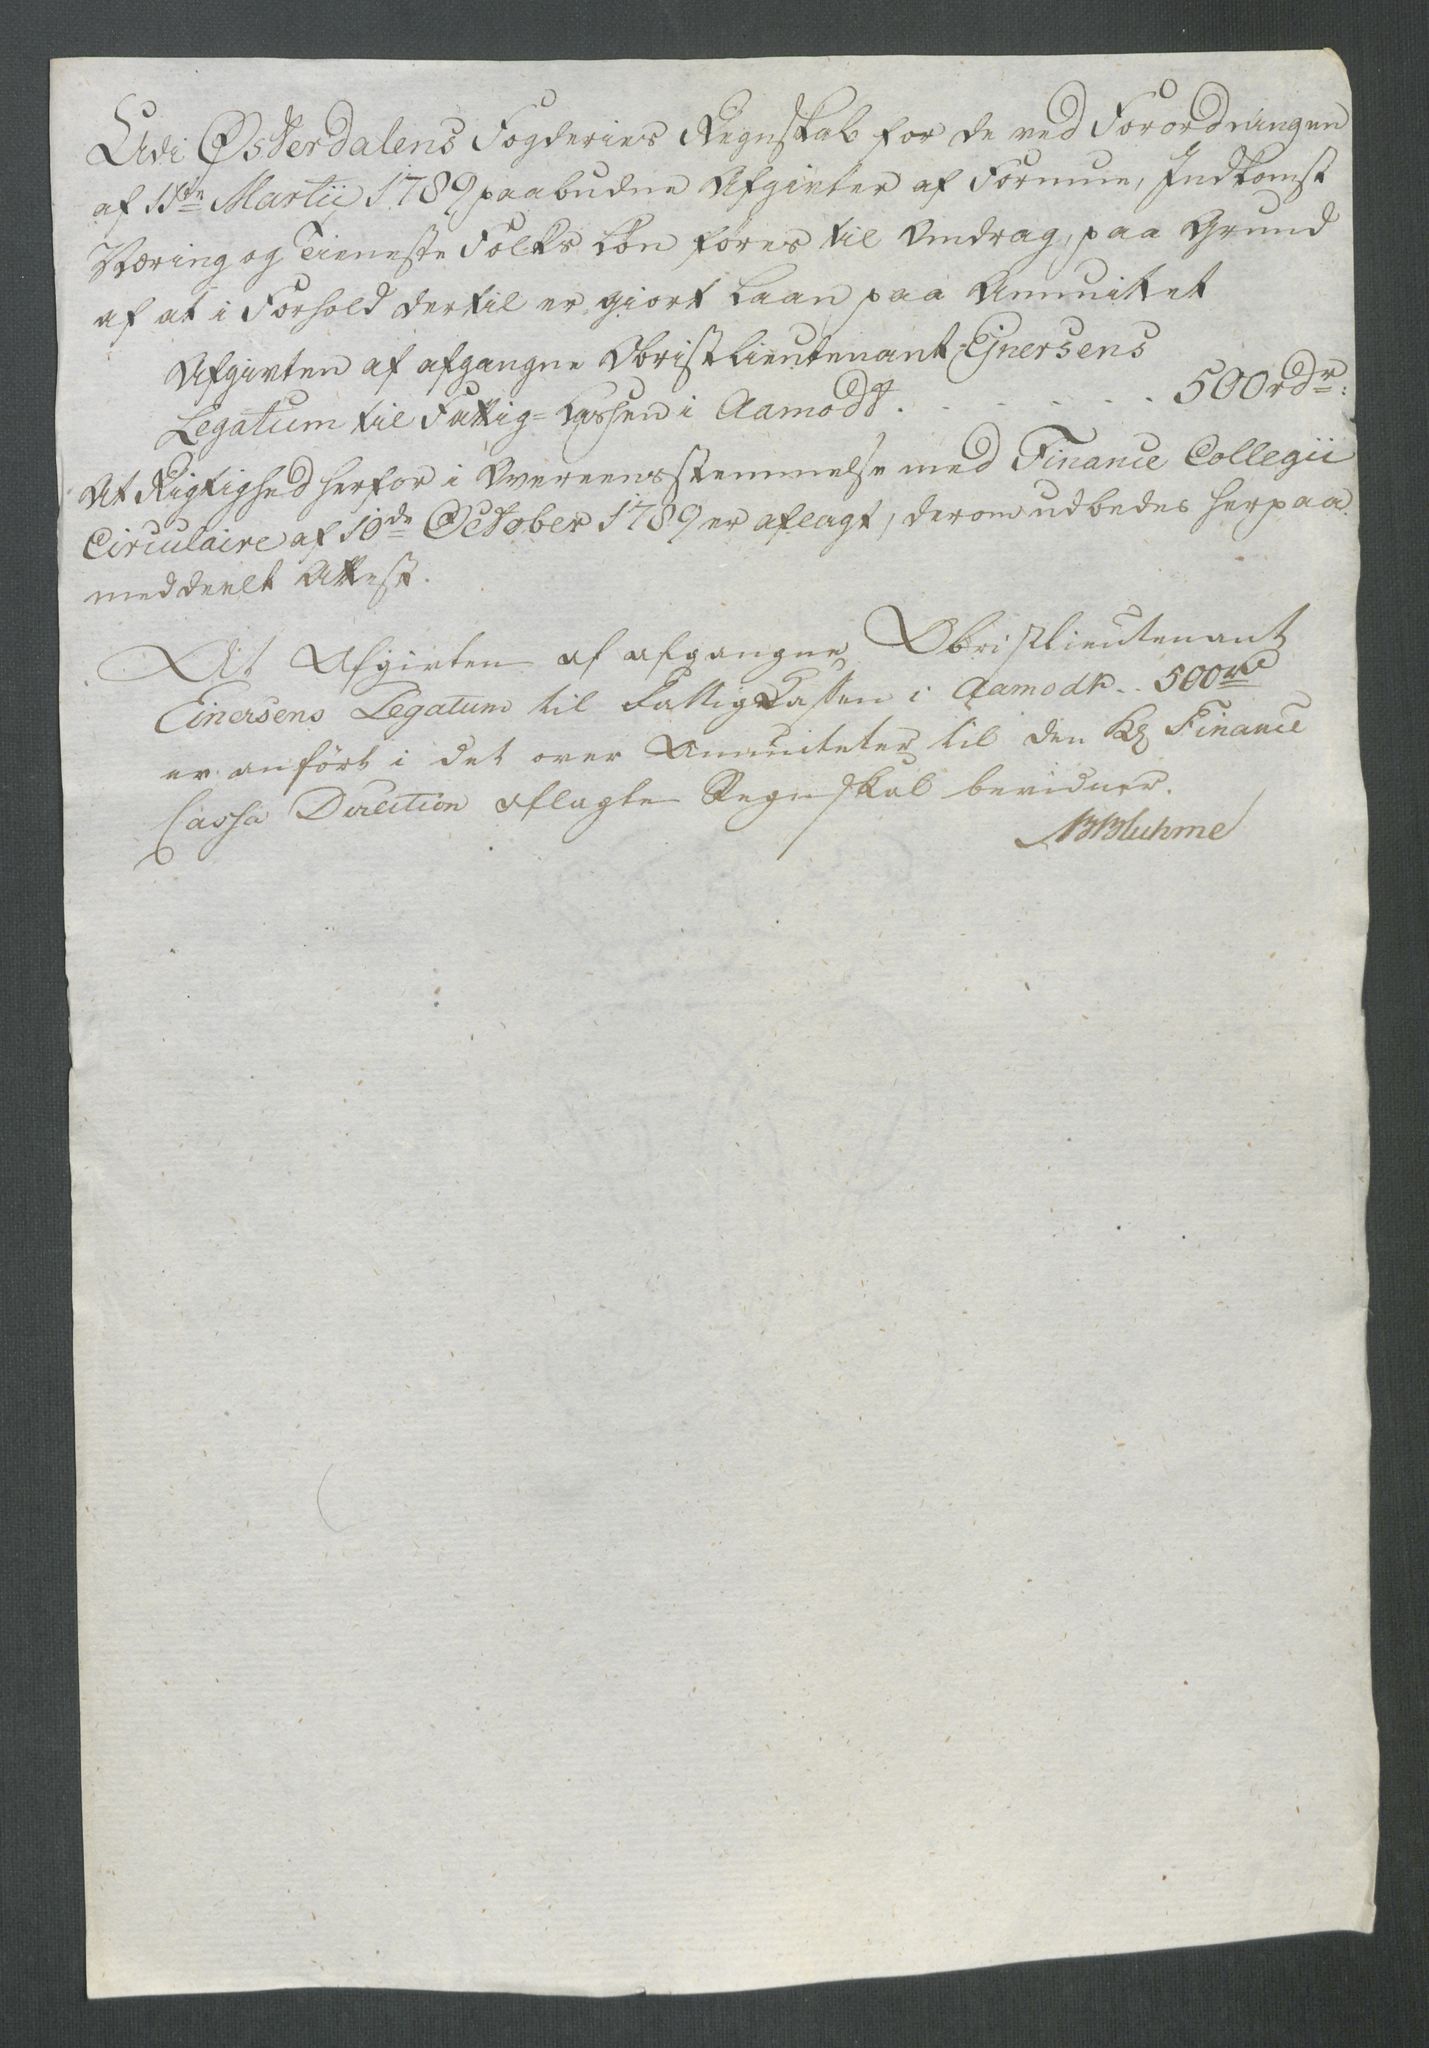 Udi Østerdalens Fogderies Regnskab for de ved Forordningen
af 11te Martij 1789 paabudne Afgivter af Formue, Indkomst
Næring og Tieneste Folks Løn føres til Afdrag, paa Grund
af at i Forhold dertil er giort Laan paa Annuitet
Afgivten af afgangne Obristlieutenant Ejnersens
Legatum til Fattig-Cassen i Aamodt. . . . . . . 500 rdr:
At Rigtighed herfor i Overeensstemmelse med Finance Collegii
Circulaire af 10de October 1789 er aflagt, derom udbedes herpaa
meddeelt Attest.
At Afgivten af afgangne Obristlieutenant
Einersens Legatum til Fattig Cassen i Aamodt . . 500 rd
er anført i det over Annuiteter til den Kgl Finance
Cassa Direction aflagte Regnskab bevidner.
Bluhme